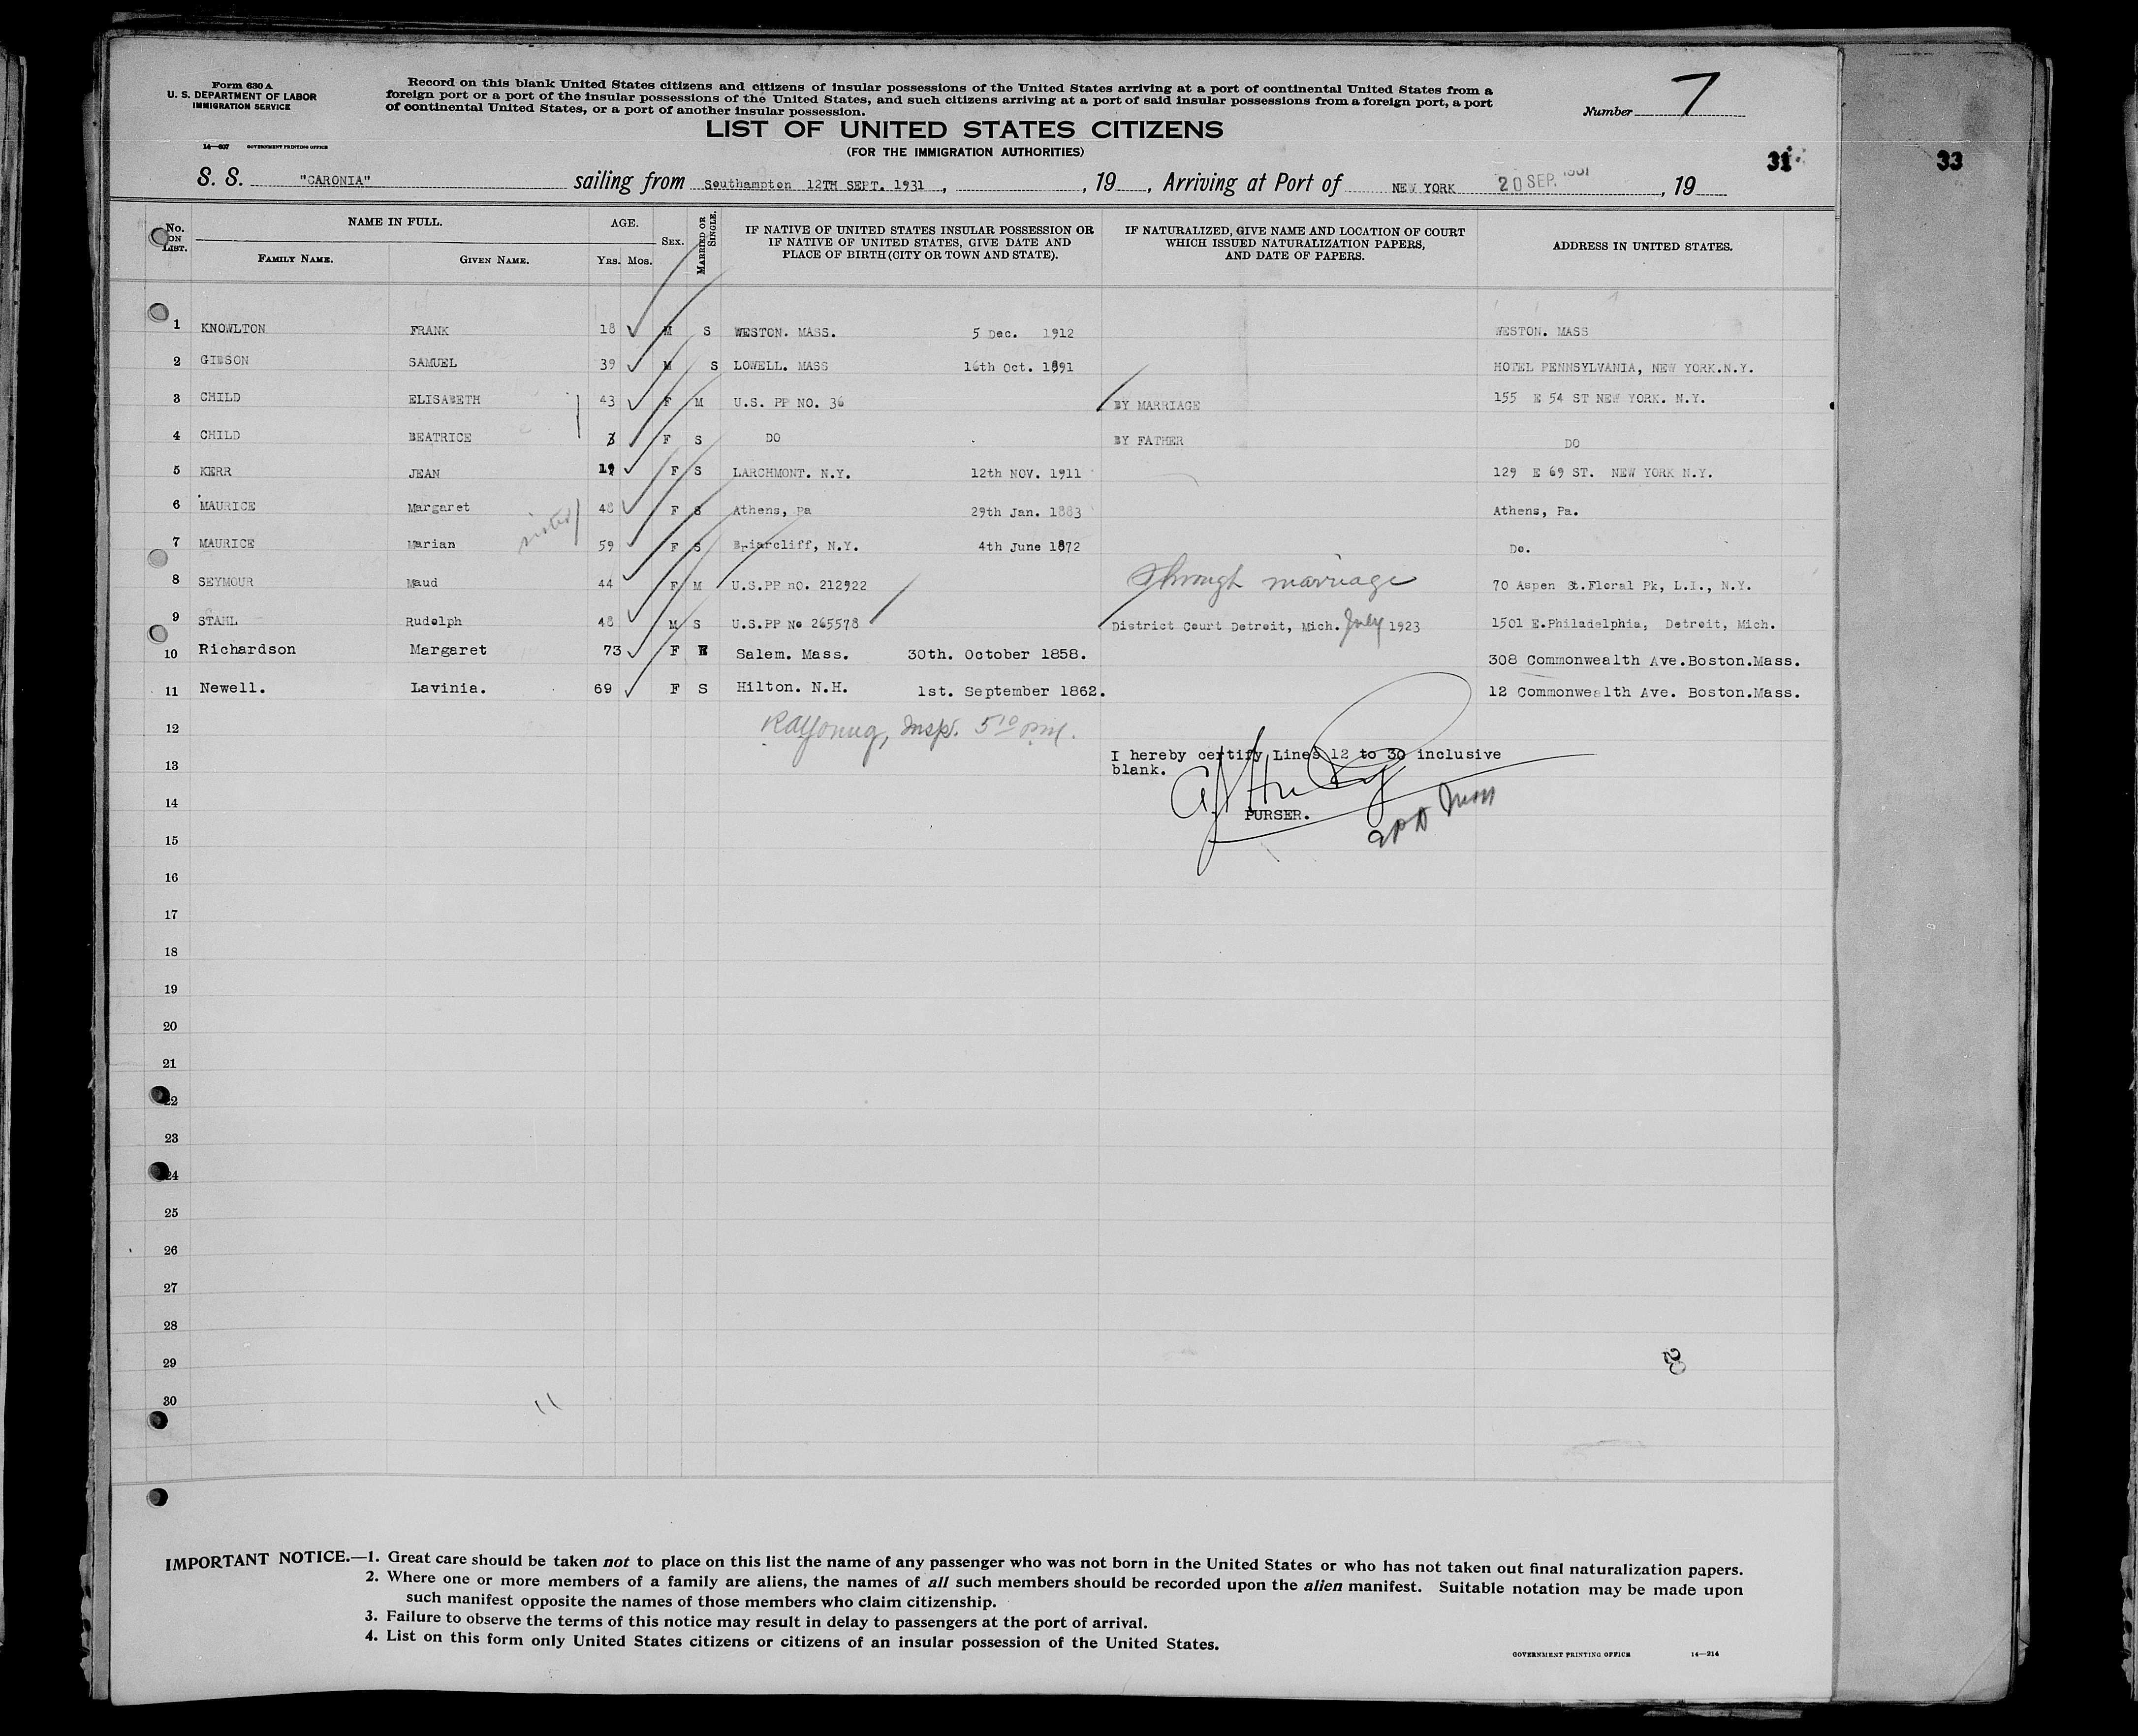 Form 630 A
U. S. DEPARTMENT OF LABOR
IMMIGRATION SERVICE
14—607 GOVERNMENT PRINTING OFFICE
Record on this blank United States citizens and citizens of insular possessions of the United States arriving at a port of continental United States from a
foreign port or a port of the insular possessions of the United States, and such citizens arriving at a port of said insular possessions from a foreign port, a port
of continental United States, or a port of another insular possession.
Number 7
LIST OF UNITED STATES CITIZENS
(FOR THE IMMIGRATION AUTHORITIES)
31 33
S. S. "CARONIA" sailing from Southampton 12TH SEPT. 1931, , 19 , Arriving at Port of NEW YORK 20 SEP. 1931 , 19
No. ON LIST. NAME IN FULL. AGE. SEX. MARRIED OR SINGLE. IF NATIVE OF UNITED STATES INSULAR POSSESSION OR IF NATIVE OF UNITED STATES, GIVE DATE AND PLACE OF BIRTH (CITY OR TOWN AND STATE). IF NATURALIZED, GIVE NAME AND LOCATION OF COURT WHICH ISSUED NATURALIZATION PAPERS, AND DATE OF PAPERS. ADDRESS IN UNITED STATES.
FAMILY NAME. GIVEN NAME. YRS. MOS.
1 KNOWLTON FRANK 18 M S WESTON. MASS. 5 Dec. 1912 WESTON. MASS
2 GIBSON SAMUEL 39 M S LOWELL. MASS 16th Oct. 1891 HOTEL PENNSYLVANIA, NEW YORK.N.Y.
3 CHILD ELISABETH 43 F M U.S. PP NO. 36 BY MARRIAGE 155 E 54 ST NEW YORK. N.Y.
4 CHILD BEATRICE 3 F S DO BY FATHER DO
5 KERR JEAN 19 F S LARCHMONT. N.Y. 12th NOV. 1911 129 E 69 ST. NEW YORK N.Y.
6 MAURICE Margaret 48 F S Athens, Pa 29th Jan. 1883 Athens, Pa.
sisters
7 MAURICE Marian 59 F S Briarcliff, N.Y. 4th June 1872 Do.
8 SEYMOUR Maud 44 F M U.S.PP nO. 212922 Through marriage 70 Aspen St.Floral Pk, L.I., N.Y.
9 STAHL Rudolph 48 M S U.S.PP No 265578 District Court Detroit, Mich. July 1923 1501 E.Philadelphia, Detroit, Mich.
10 Richardson Margaret 73 F Salem. Mass. 30th. October 1858. 308 Commonwealth Ave.Boston.Mass.
11 Newell. Lavinia. 69 F S Hilton. N.H. 1st. September 1862. 12 Commonwealth Ave. Boston.Mass.
12 RAYoung, Insp. 5 10 pm.
I hereby certify Lines 12 to 30 inclusive
13 blank.
14 PURSER.
15
16
17
18
19
20
21
22
23
24
25
26
27
28
29
30
IMPORTANT NOTICE.—1. Great care should be taken not to place on this list the name of any passenger who was not born in the United States or who has not taken out final naturalization papers.
2. Where one or more members of a family are aliens, the names of all such members should be recorded upon the alien manifest. Suitable notation may be made upon
such manifest opposite the names of those members who claim citizenship.
3. Failure to observe the terms of this notice may result in delay to passengers at the port of arrival.
4. List on this form only United States citizens or citizens of an insular possession of the United States.
GOVERNMENT PRINTING OFFICE 14—214